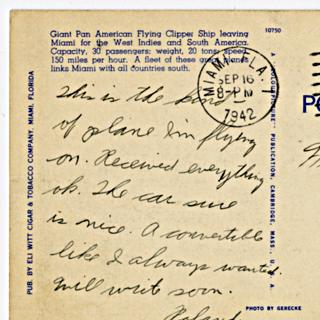 10750
Giant Pan American Flying Clipper Ship leaving
Miami for the West Indies and South America.
Capacity, 30 passengers; weight, 20 tons; speed
150 miles per hour. A fleet of these great planes
links Miami with all countries south.
MIAMI, FLA. 1
SEP 16
8-PM
1942
PO
This is the kind
of plane I'm flying
on. Received everything
ok. The car sure
is nice. A convertible
like I always wanted.
Will write soon.
Roland
PUB. BY ELI WITT CIGAR & TOBACCO COMPANY, MIAMI, FLORIDA
A COLOURPICTURE PUBLICATION, CAMBRIDGE, MASS., U. S. A.
PHOTO BY GERECKE